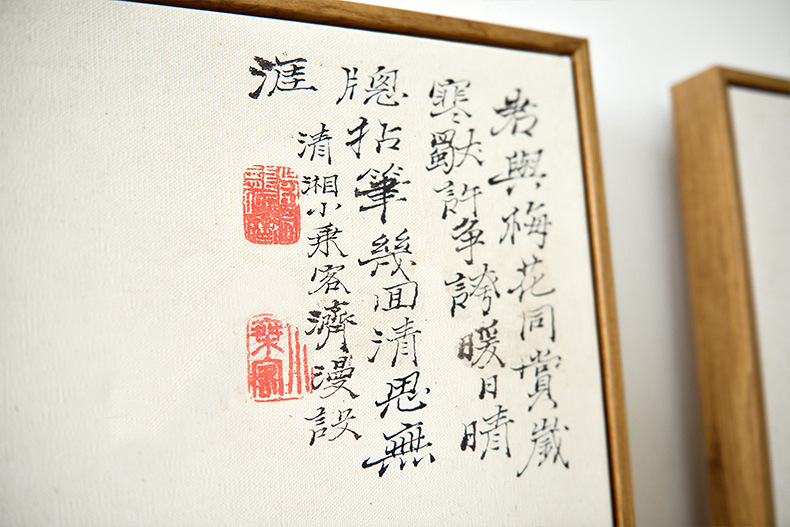 君與梅花同賞歲
寒獨許爭誇暖日晴
牎拈筆幾回清思無
涯
清湘小乘客濟漫設
小乘客